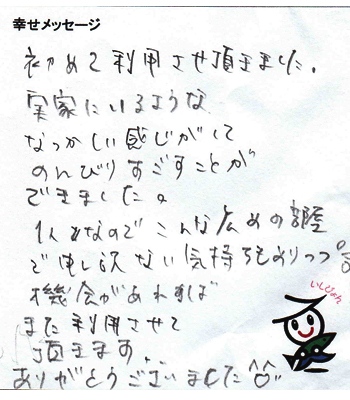 幸せメッセージ
初めて利用させ頂きました。
実家にいるような
なつかしい感じがして
のんびりすごすことが
できました。
1人なのでこんな広めの部屋
で申し訳ない気持ちもありつつ。
機会があれば
また利用させて
頂きます。
ありがとうございました^^